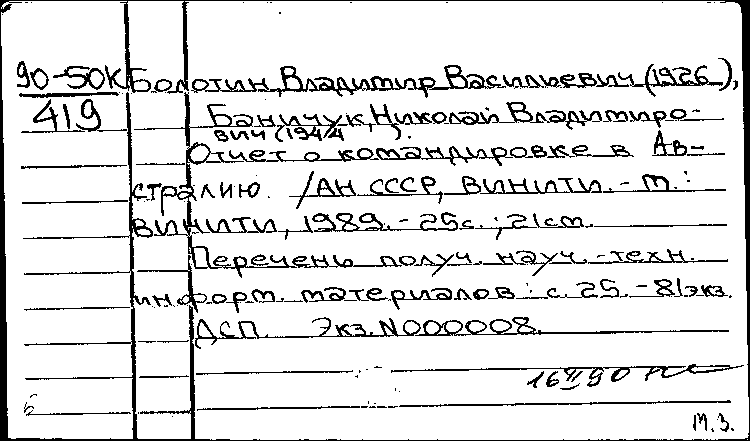 90-50К Болотин, Владимир Васильевич (1926 ),
419 Баничук, Николай Владимиро-
вич (1944 ).
Отчет о командировке в Ав-
стралию. /АН СССР, ВИНИТИ. - М.:
ВИНИТИ, 1989. - 25с.; 21см.
Перечень получ. науч.-техн.
информ. материалов: с. 25. - 81экз.
ДСП. Экз. N000008.
16 II 90
б
М.З.